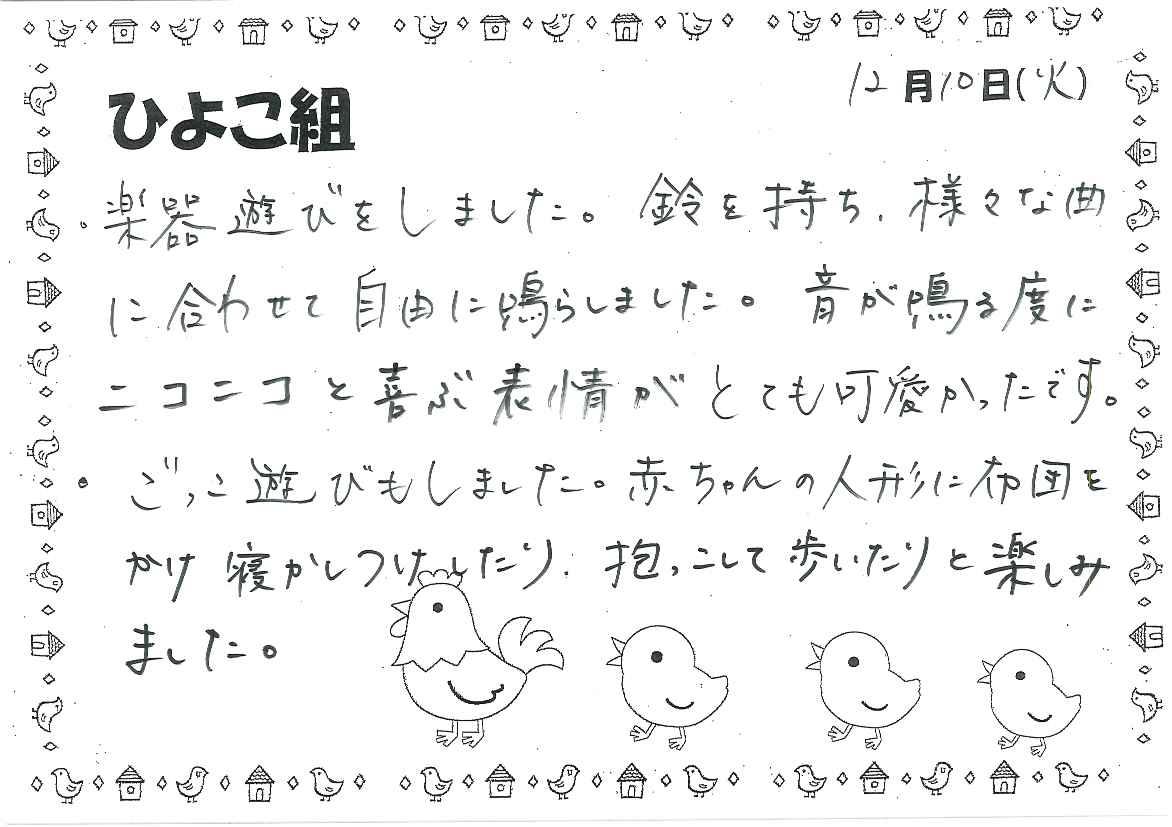 ひよこ組
12月10日(火)
・楽器遊びをしました。鈴を持ち、様々な曲
に合わせて自由に鳴らしました。音が鳴る度に
ニコニコと喜ぶ表情がとても可愛かったです。
・ごっこ遊びもしました。赤ちゃんの人形に布団を
かけ寝かしつけしたり、抱っこして歩いたりと楽しみ
ました。